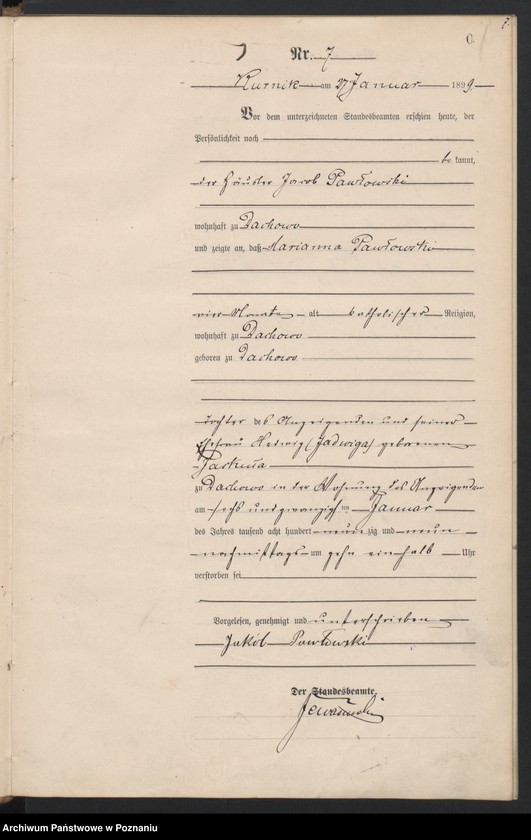 Nr. 7
Kurnik am 27 Januar 1899.
Vor dem unterzeichneten Standesbeamten erschien heute, der
Persönlichkeit nach
be kannt,
der Häusler Jacob Pawłowski
wohnhaft zu Dachowo
und zeigte an, daß Marianna Pawłowski
vier Monate alt katholischer Religion,
wohnhaft zu Dachowo
geboren zu Dachowo
Tochter des Anzeigenden und seiner
Ehefrau Hedwig (Jadwiga) geborenen
zu Dachowo in der Wohnung des Anzeigenden
am sechs und zwanzigsten Januar
des Jahres tausend acht hundert neunzig und neun
nachmittags um zehn einhalb Uhr
verstorben sei
Vorgelesen, genehmigt und unterschrieben
Jakób Pawłowski
Der Standesbeamte.
Archiwum Państwowe w Poznaniu